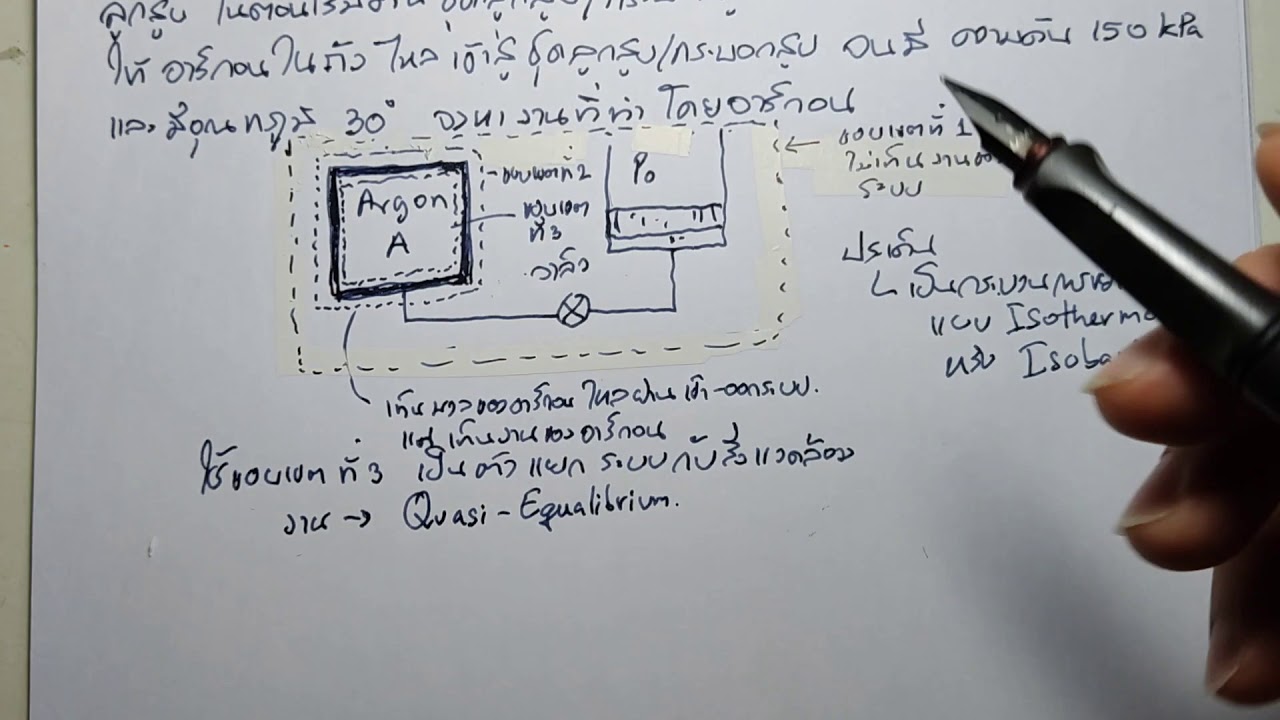 ลูกสูบ ในตอนเริ่มต้น ชุดลูกสูบ/กระบอกสูบ
ให้ อาร์กอนในถัง ไหลเข้าสู่ ชุดลูกสูบ/กระบอกสูบ จนมี ความดัน 150 kPa
และมีอุณหภูมิ 30° จงหางานที่ทำ โดยอาร์กอน
Argon
A
ขอบเขตที่ 2
ขอบเขต
ที่ 3
วาล์ว
P₀
ขอบเขตที่ 1
ไม่เห็นงานของ
ระบบ
ประเด็น
↳ เป็นกระบวนการ
แบบ Isotherm
หรือ Isoba
เห็นมวลของอาร์กอน ไหลผ่านเข้า-ออกระบบ.
แต่เห็นงานของอาร์กอน
ใช้ขอบเขตที่ 3 เป็นตัวแยก ระบบกับสิ่งแวดล้อม
งาน → Quasi-Equalibrium.